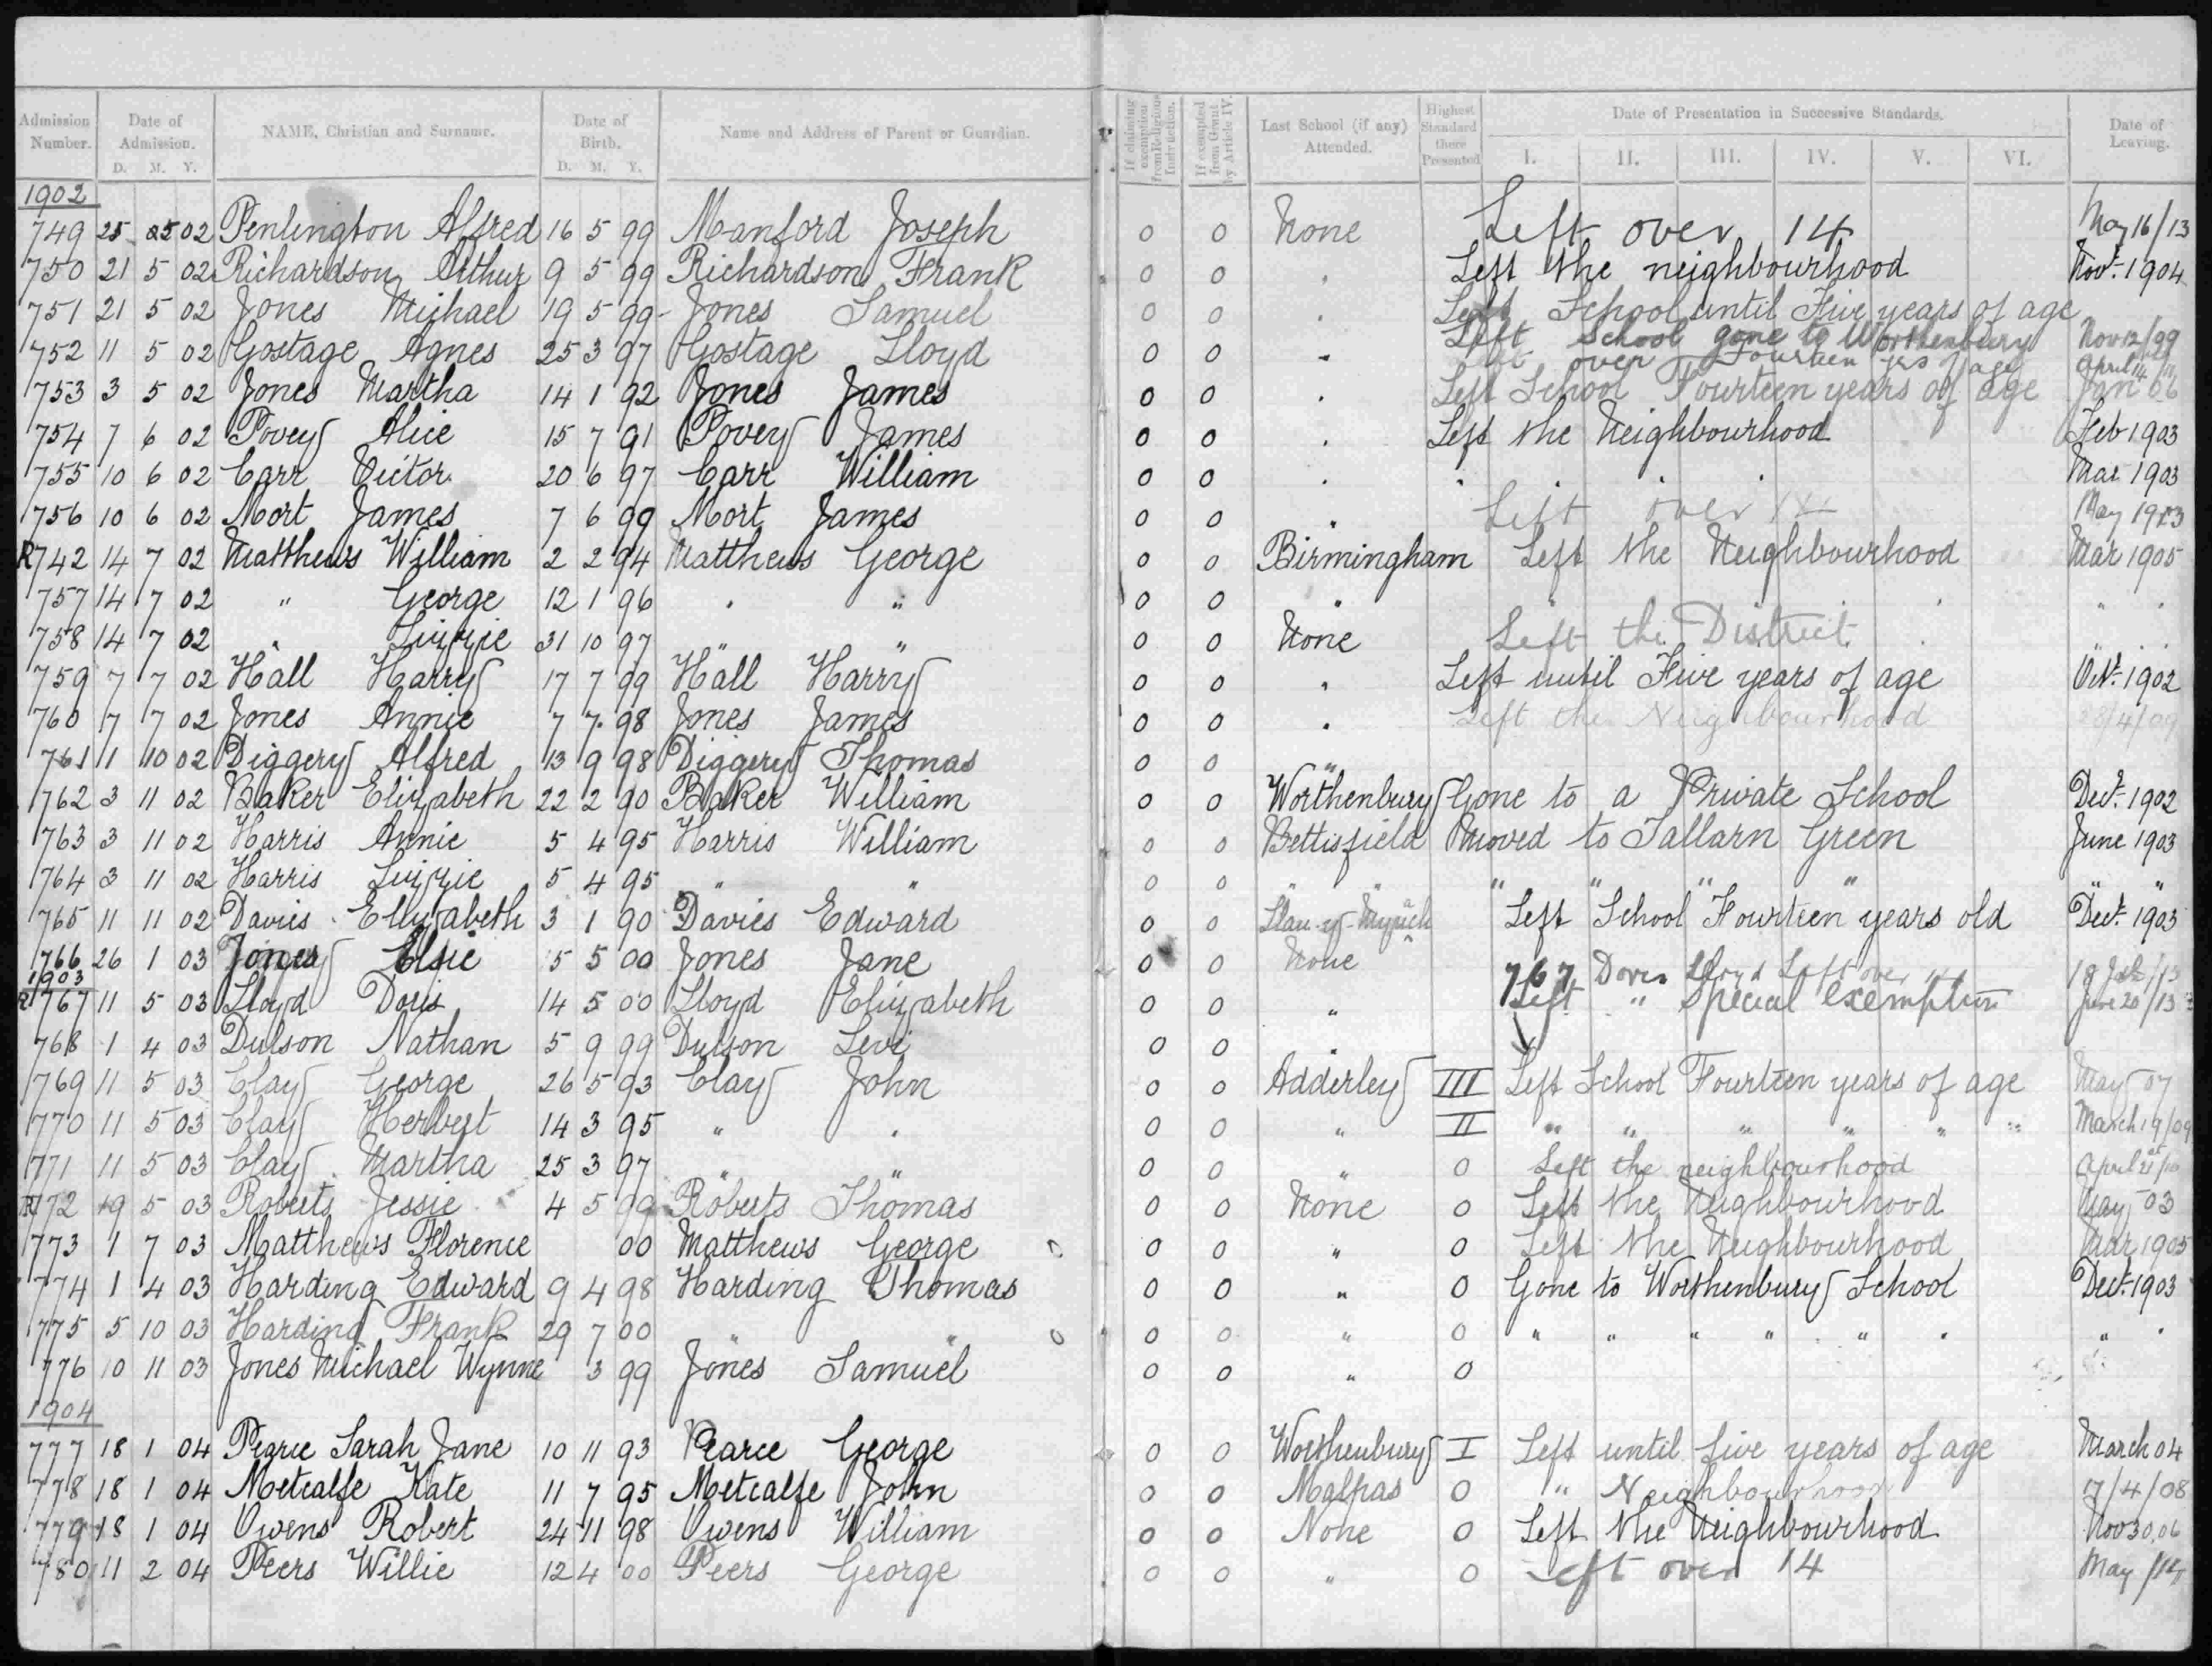 Admission Number.
Date of Admission.
D. M. Y.
NAME, Christian and Surname.
Date of Birth.
D. M. Y.
Name and Address of Parent or Guardian.
If claiming exemption from Religious Instruction.
If exempted from Grant by Article IV.
Last School (if any) Attended.
Highest Standard there Presented
Date of Presentation in Successive Standards.
I. II. III. IV. V. VI.
Date of Leaving.
1902
749 25 5 02 Penlington Alfred 16 5 99 Manford Joseph 0 0 None Left over 14 May 16/13
750 21 5 02 Richardson Arthur 9 5 99 Richardson Frank 0 0 " Left the neighbourhood Novr. 1904
751 21 5 02 Jones Michael 19 5 99 Jones Samuel 0 0 " Left School until Five years of age
Left School gone to Worthenbury Nov 12/09
752 11 5 02 Gostage Agnes 25 3 97 Gostage Lloyd 0 0 " Left over Fourteen yrs of age April 14/11
753 3 5 02 Jones Martha 14 1 92 Jones James 0 0 " Left School Fourteen years of age Jan 06
754 7 6 02 Povey Alice 15 7 91 Povey James 0 0 " Left the Neighbourhood Feb 1903
755 10 6 02 Carr Victor 20 6 97 Carr William 0 0 " " " " Mar 1903
756 10 6 02 Mort James 7 6 99 Mort James 0 0 " Left over 14 May 1913
R742 14 7 02 Matthews William 2 2 94 Matthews George 0 0 Birmingham Left the Neighbourhood Mar 1905
757 14 7 02 " George 12 1 96 " " 0 0 " " " " "
758 14 7 02 " Lizzie 31 10 97 " " 0 0 None Left the District " "
759 7 7 02 Hall Harry 17 7 99 Hall Harry 0 0 " Left until Five years of age Oct. 1902
760 7 7 02 Jones Annie 7 7 98 Jones James 0 0 " Left the Neighbourhood 28/4/09
761 1 10 02 Diggery Alfred 13 9 98 Diggery Thomas 0 0 "
762 3 11 02 Baker Elizabeth 22 2 90 Baker William 0 0 Worthenbury Gone to a Private School Dec. 1902
763 3 11 02 Harris Annie 5 4 95 Harris William 0 0 Bettisfield Moved to Tallarn Green June 1903
764 3 11 02 Harris Lizzie 5 4 95 " " 0 0 " " " " " " "
765 11 11 02 Davies Elizabeth 3 1 90 Davies Edward 0 0 Left School Fourteen years old Dec. 1903
766 26 1 03 Jones Elsie 5 5 00 Jones Jane 0 0 None
1903
767 Doris Lloyd Left over 14
R767 11 5 03 Lloyd Doris 14 5 00 Lloyd Elizabeth 0 0 " Left " Special Exemption June 20/13
768 1 4 03 Dulson Nathan 5 9 99 Dulson Levi 0 0 "
769 11 5 03 Clay George 26 5 93 Clay John 0 0 Adderley III Left School Fourteen years of age May 07
770 11 5 03 Clay Herbert 14 3 95 " " 0 0 " II " " " " " " March 19/09
771 11 5 03 Clay Martha 25 3 97 " " 0 0 " 0 Left the neighbourhood
R772 19 5 03 Roberts Jessie 4 5 99 Roberts Thomas 0 0 None 0 Left the Neighbourhood May 03
773 1 7 03 Matthews Florence 00 Matthews George 0 0 " 0 Left the Neighbourhood Mar 1905
774 1 4 03 Harding Edward 9 4 98 Harding Thomas 0 0 " 0 Gone to Worthenbury School Dec. 1903
775 5 10 03 Harding Frank 29 7 00 " " 0 0 " 0 " " " " " " " "
776 10 11 03 Jones Michael Wynne 3 99 Jones Samuel 0 0 " 0
1904
777 18 1 04 Pearce Sarah Jane 10 11 93 Pearce George 0 0 Worthenbury I Left until five years of age March 04
778 18 1 04 Metcalfe Kate 11 7 95 Metcalfe John 0 0 Malpas 0 " Neighbourhood 17/4/08
779 18 1 04 Owens Robert 24 11 98 Owens William 0 0 None 0 Left the Neighbourhood Nov 30.06
780 11 2 04 Peers Willie 12 4 00 Peers George 0 0 " 0 Left over 14 May /14